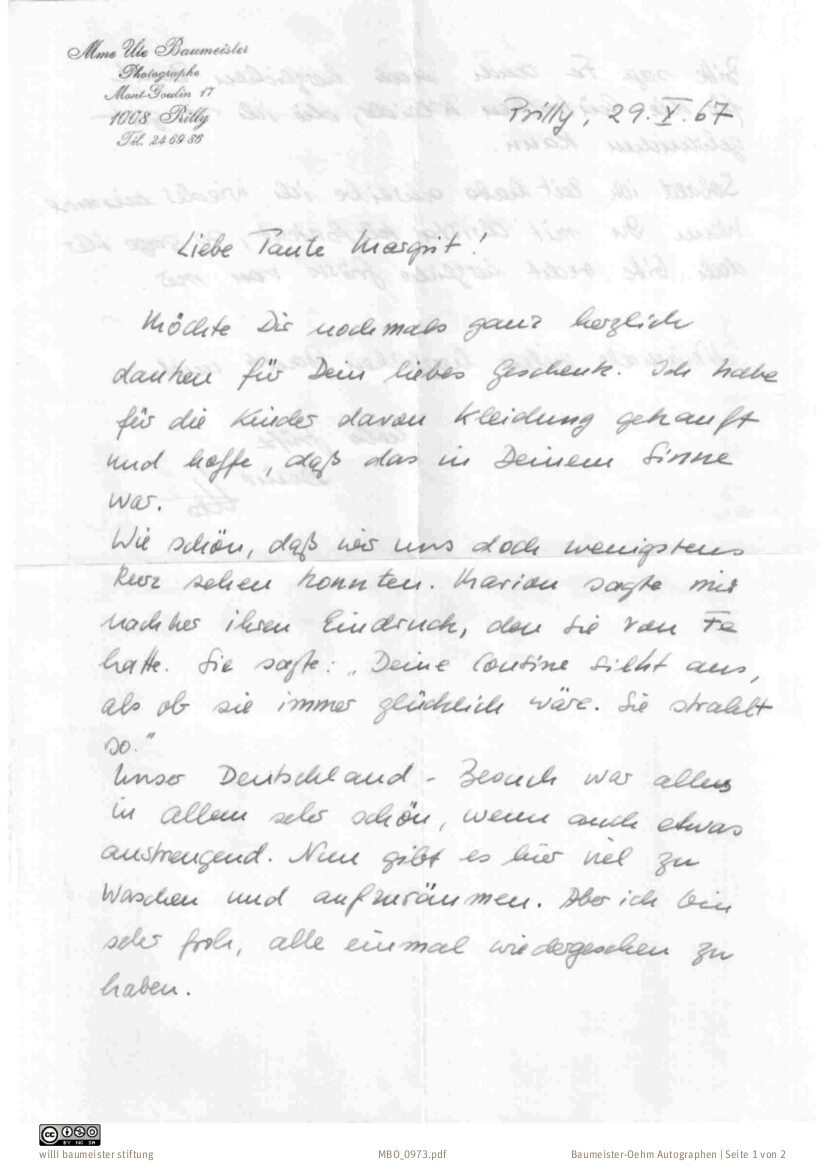 Mme Ute Baumeister
Photographe
Mont-Goulin 17
1008 Prilly
Tél. 24 69 86
Prilly, 29. X. 67
Liebe Tante Margrit!
Möchte Dir nochmals ganz herzlich
danken für Dein liebes Geschenk. Ich habe
für die Kinder davon Kleidung gekauft
und hoffe, daß das in Deinem Sinne
war.
Wie schön, daß wir uns doch wenigstens
kurz sehen konnten. Marion sagte mir
nachher ihren Eindruck, den sie von Fe
hatte. Sie sagte: „Deine Cousine sieht aus,
als ob sie immer glücklich wäre. Sie strahlt
so."
Unser Deutschland-Besuch war alles
in allem sehr schön, wenn auch etwas
anstrengend. Nun gibt es hier viel zu
waschen und aufzuräumen. Aber ich bin
sehr froh, alle einmal wiedergesehen zu
haben.
BY NC SA
willi baumeister stiftung
MBO_0973.pdf
Baumeister-Oehm Autographen | Seite 1 von 2